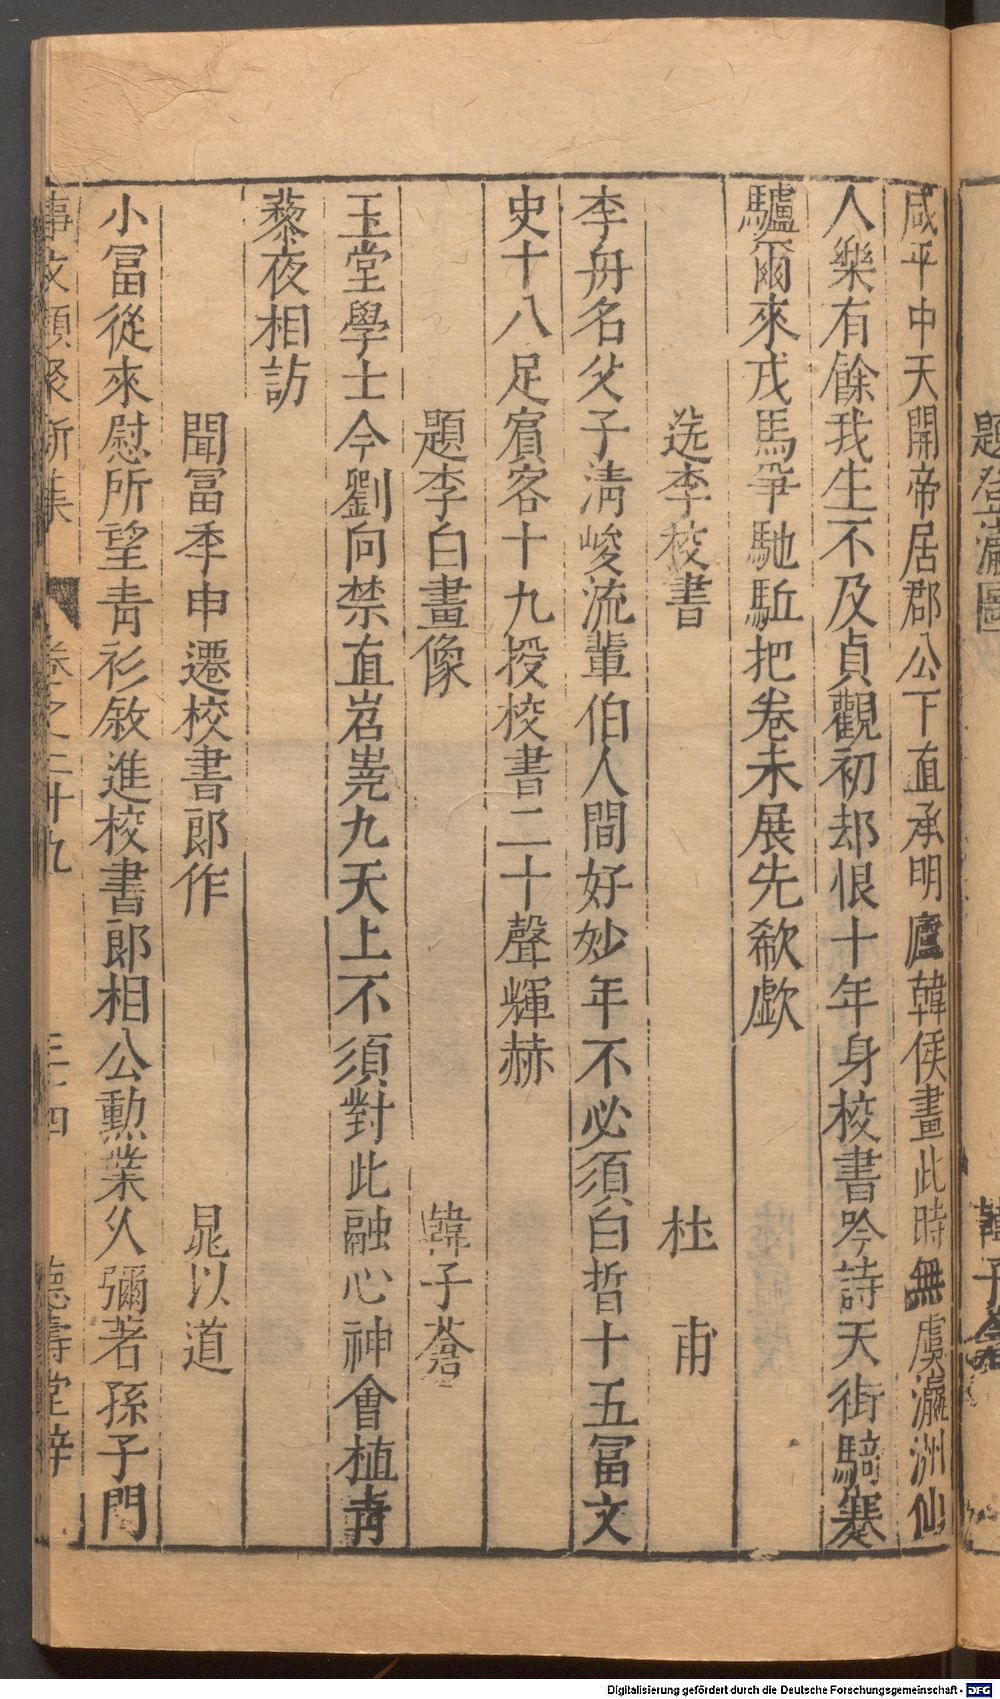 咸平中天開帝居郡公下直承明廬韓侯畫此時無虞瀛洲仙
人樂有餘我生不及貞觀初却恨十年身校書吟詩天街騎蹇
驢爾來戎馬爭馳駈把卷未展先欷歔
送李校書 杜甫
李舟名父子清峻流輩伯人間好妙年不必須白晳十五冨文
史十八足賓客十九授校書二十聲輝赫
題李白畫像 韓子蒼
玉堂學士今劉向禁直岧嶤九天上不須對此融心神會植青
藜夜相訪
聞冨季申遷校書郎作 晁以道
小冨從來慰所望青衫敘進校書郎相公勲業久彌著孫子門
事文類聚新集 卷之二十九 三十四 德壽堂梓
題登瀛圖 韓子蒼
Digitalisierung gefördert durch die Deutsche Forschungsgemeinschaft - DFG